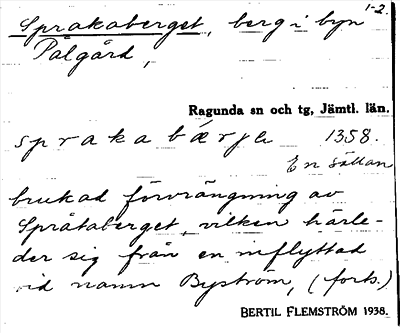 1-2.
Sprakaberget, berg i byn
Pålgård,
Ragunda sn och tg, Jämtl. län.
sprakabærje 1358.
En sällan
brukad förvrängning av
Språtaberget, vilken härle-
der sig från en inflyttad
vid namn Byström, (forts.)
BERTIL FLEMSTRÖM 1938.